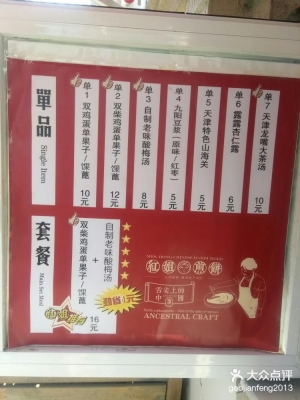 單品
Single Item
单1 双鸡蛋单果子/馃蓖 10元
单2 双柴鸡蛋单果子/馃蓖 12元
单3 自制老味酸梅汤 8元
单4 九阳豆浆(原味/红枣) 5元
单5 天津特色山海关 5元
单6 露露杏仁露 6元
单7 天津龙嘴大茶汤 10元
套餐
Main Set Meal
双柴鸡蛋单果子/馃蓖
+
自制老味酸梅汤
16元
煎饼
舌尖上的中国
ANCESTRAL CRAFT
大众点评
gaojianfeng2013